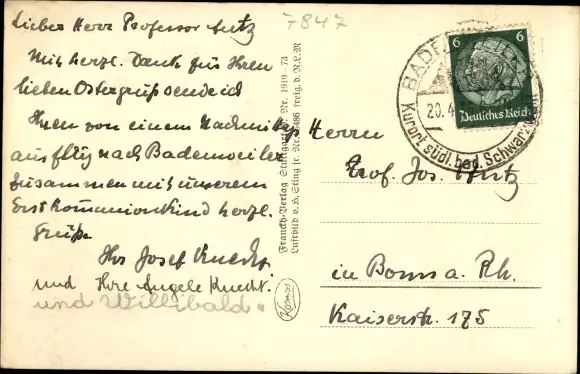 7847
Lieber Herr Professor
Mit herzl. Dank für Ihren
lieben Ostergruß sende ich
Ihnen von einem Nachmittags
ausflug nach Badenweiler
zusammen mit unserem
Erstkommunionkind herzl.
Grüße
Ihr Josef Knecht
und Ihre Angele Knecht.
und Willibald
Franckh-Verlag Stuttgart Nr. 1919-73
Luftbild v. H. Sting jr. Nr. 5486 freig. d. R.L.M
Kosmos
6 6
Deutsches Reich
BADENWEILER
20.4.
Kurort südl. bad. Schwarzwald
Herrn
Prof. Jos.
in Bonn a. Rh.
Kaiserstr. 175